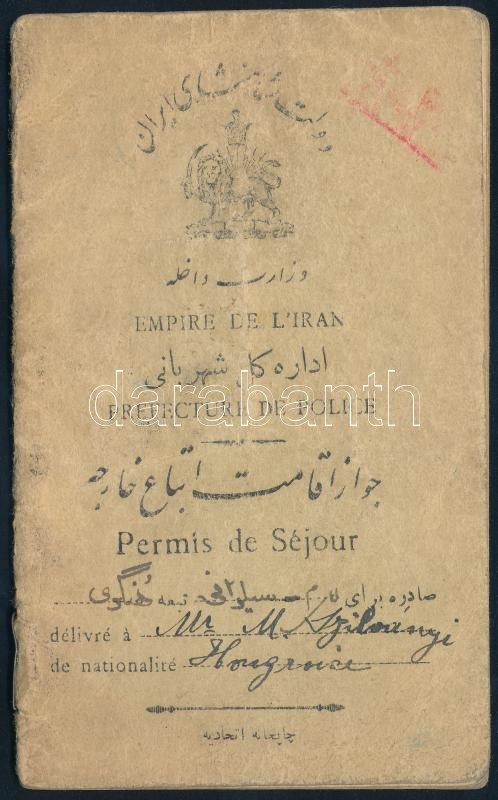 دولت شاهنشاهی ایران
وزارت داخله
EMPIRE DE L'IRAN
اداره کل شهربانی
darabanth
PREFECTURE DE POLICE
جواز اقامت اتباع خارجه
Permis de Séjour
صادره برای تبعه هنگری
délivré à Mr M. Szilvanyi
de nationalité Hongroise
چاپخانه اتحادیه